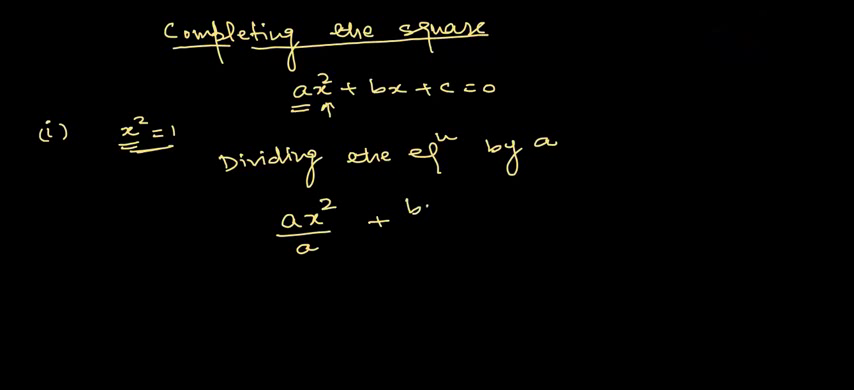 Completing the square
ax² + bx + c = 0
(i) x² = 1
Dividing the eqⁿ by a
ax²/a + b.